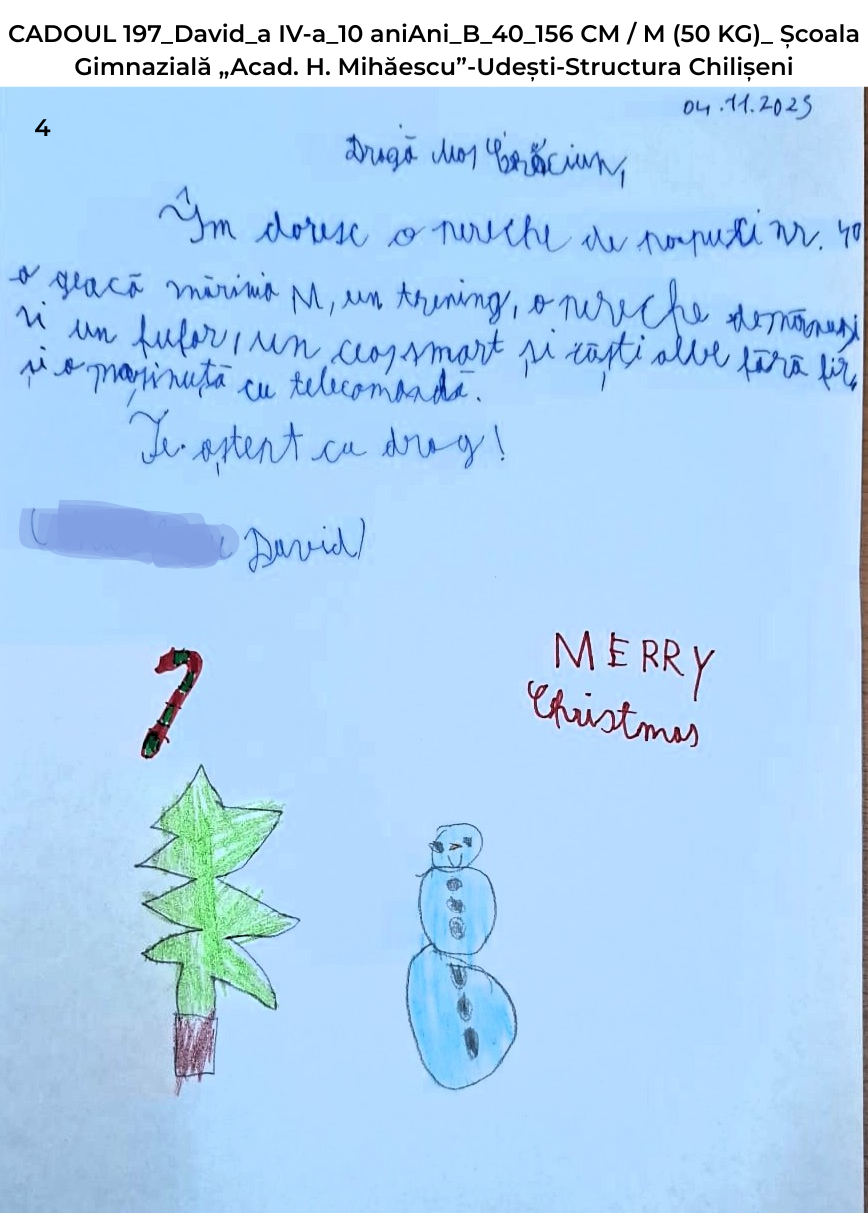 CADOUL 197_David_a IV-a_10 aniAni_B_40_156 CM / M (50 KG)_ Școala
Gimnazială „Acad. H. Mihăescu”-Udești-Structura Chilișeni
04.11.2025
4
Dragă Moș Crăciun,
Îm doresc o pereche de papuci nr. 40
o geacă mărimia M, un trening, o pereche de mănuși
și un fular, un ceas smart și căști albe fără fir,
și o mașinuță cu telecomandă.
Te aștept cu drag!
David
MERRY
Christmas